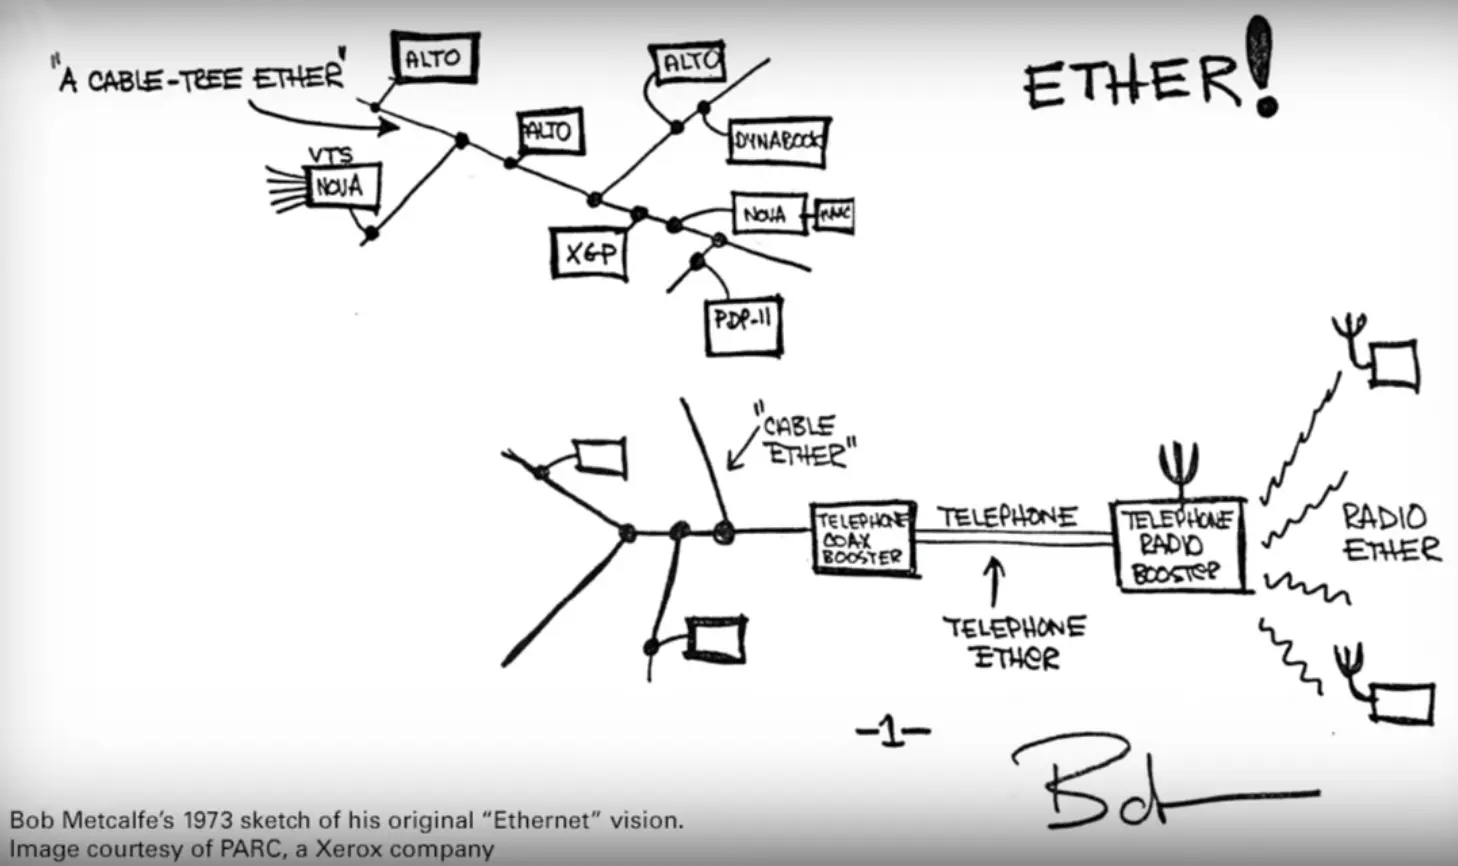 "A CABLE-TREE ETHER"
ALTO
ALTO
ALTO
DYNABOOK
ETHER!
VTS
NOVA
XGP
NOVA
PDP-11
"CABLE
ETHER"
TELEPHONE
COAX
BOOSTER
TELEPHONE
TELEPHONE
ETHER
TELEPHONE
RADIO
BOOSTER
RADIO
ETHER
-1-
Bob
Bob Metcalfe's 1973 sketch of his original "Ethernet" vision.
Image courtesy of PARC, a Xerox company